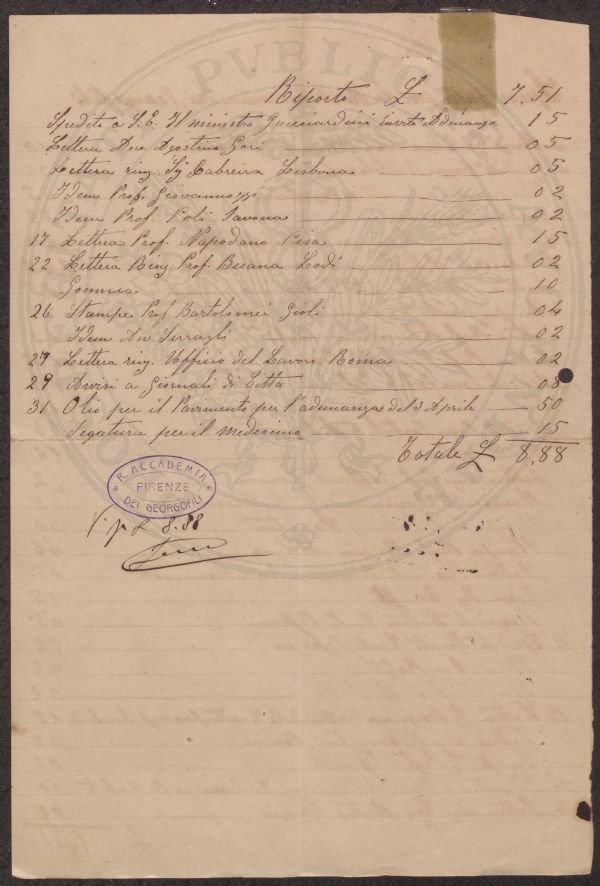 PVBLIC
Riporto £ 7.51
Spedito a S. E. Il ministro Guicciardini invito Adunanza 15
Lettera Avv Agostino Gori 05
Lettera ring. Sig Cabreira Lisbona 05
Idem Prof. Giovannozzi 02
Idem Prof. Poli Savona 02
17 Lettera Prof. Napodano Pisa 15
22 Lettera Ring Prof. Besana Lodi 02
Gomma 10
26 Stampe Prof. Bartolomei Gioli 04
Idem Avv Serragli 02
27 Lettera ring. Ufficio del Lavoro Roma 02
29 Avvisi a Giornali di Città 08
31 Olio per il Pavimento per l'adunanza del 3 Aprile 50
Segatura per il medesimo 15
Totale £ 8.88
R. ACCADEMIA
FIRENZE
DEI GEORGOFILI
£ 8.88